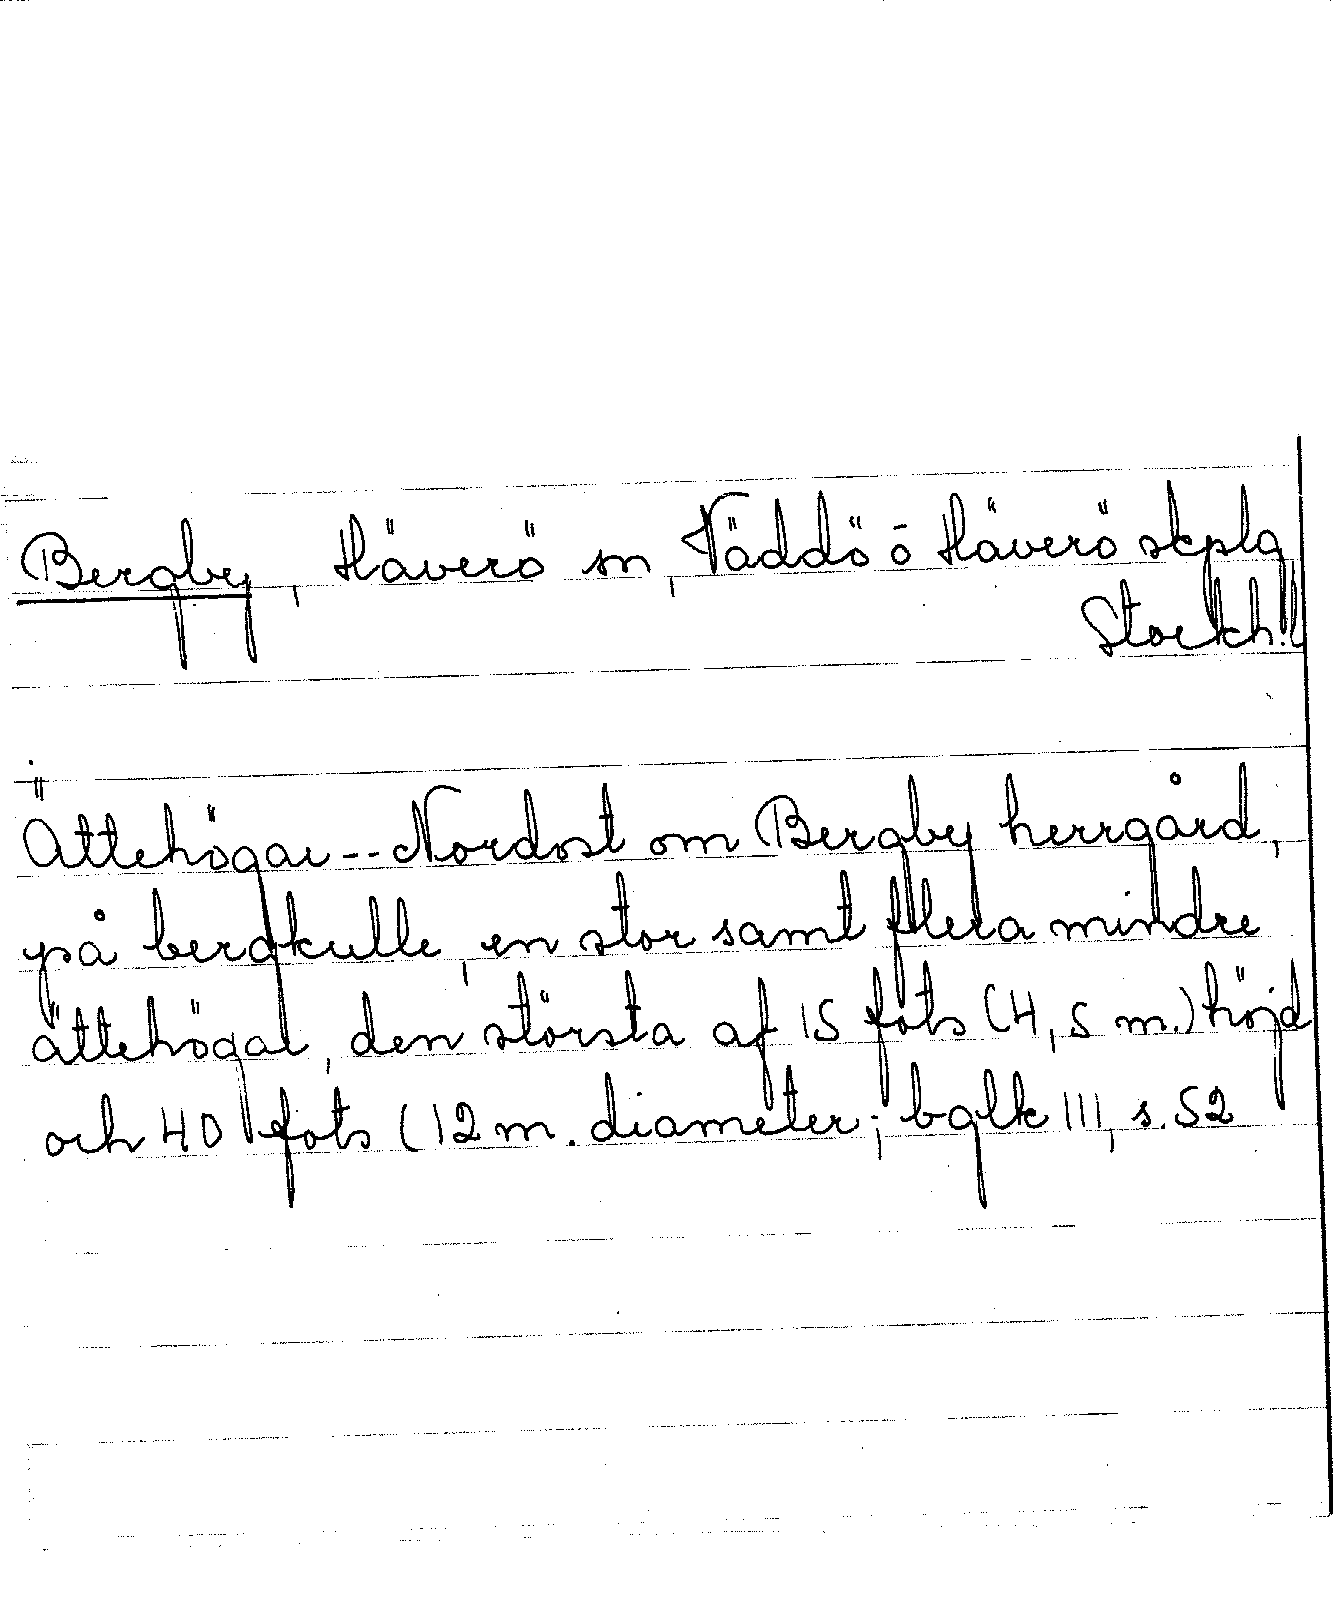 Bergby, Häverö sn, Väddö ō Häverö skplg
Stockh.l
Ättehögar -- Nordost om Bergby herrgård,
på bergkulle, en stor samt flera mindre
ättehögar, den största af 15 fots (4,5 m.) höjd
och 40 fots (12 m. diameter; bglk III, s. 52